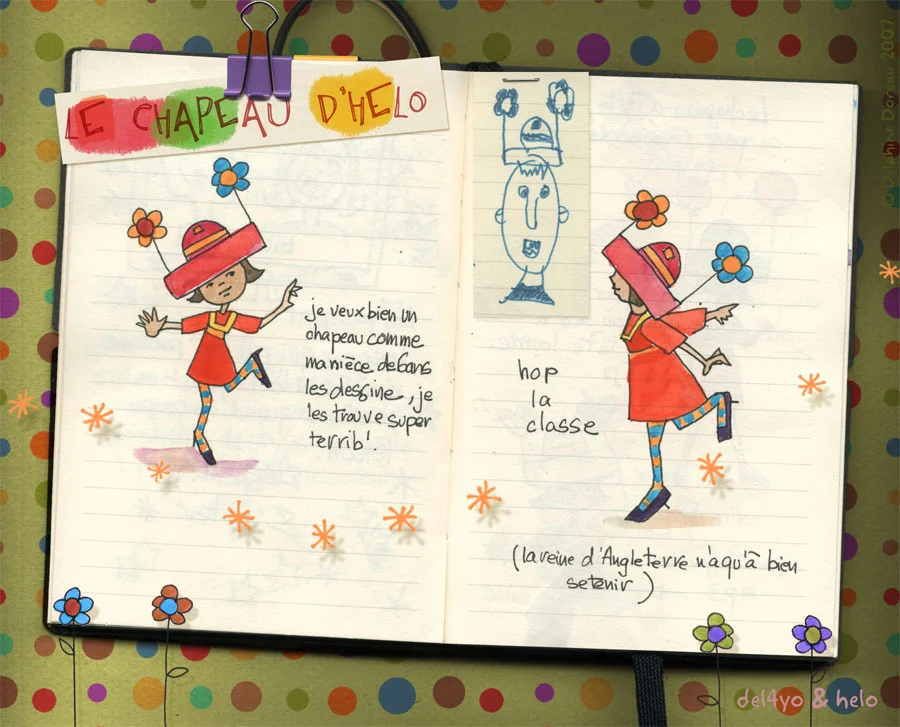 LE CHAPEAU D'HELO
je veux bien un
chapeau comme
ma nièce de 6 ans
les dessine, je
les trouve super
terrib'.
hop
la
classe
(la reine d'Angleterre n'a qu'à bien
se tenir)
© Delphine Doreau 2007
del4yo & helo